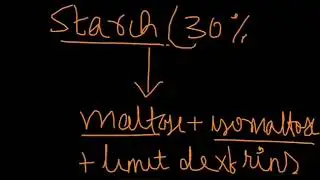 Starch (30%
maltose + isomaltose
+ limit dextrins